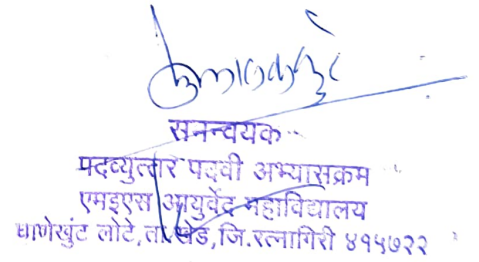 सनन्वयक
पदव्युत्तर पदवी अभ्यासक्रम
एमइएस आयुर्वेद महाविद्यालय
घाणेखुंट लोटे, ता.खेड, जि.रत्नागिरी ४१५७२२